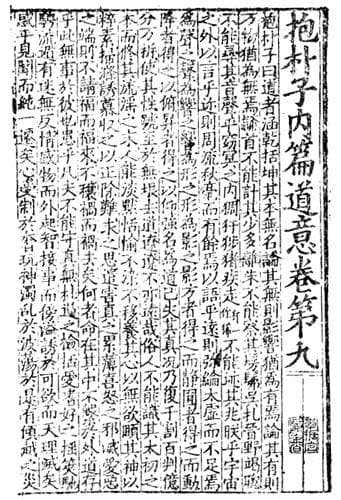 抱朴子內篇道意卷第九
抱朴子曰道者涵乾括坤其本無名論其無則影響猶為有焉論其有則
萬物尚為無焉隸首不能計其多少離朱不能察其髣髴吳札晉野竭聰
不能尋其音聲乎窈冥之內猪疾走不能迹其兆朕乎宇宙
之外以言乎近則周流秋毫而有餘焉以語乎遠則彌綸太虛而不足焉
為聲之聲為響之響為形之形為影之影方者得之而靜員者得之而動
降者得之以俯昇者得之以仰強名為道已失其真況乃復千割百判億
分万析使其姓號至於無垠去道遼遼不亦遠哉俗人不能識其太初之
本而修其流淫之末人能淡默恬愉不染不移養其心以無欲頤其神以
粹素掃滌誘慕收之以正除難求之思遣害真之累薄喜怒之邪滅愛惡
之端則不請福而福來不禳禍而禍去矣何者命在其中不繫於外道存
乎此無事於彼也患乎凡夫不能守真無杜遏之檢括愛嗜好之搖奪馳
騁流遁有迷無反情感物而外起智接事而傍溢誘於可欲而天理滅矣
惑乎見聞而純一遷矣心受制於奢玩神濁亂於波蕩於是有傾越之災